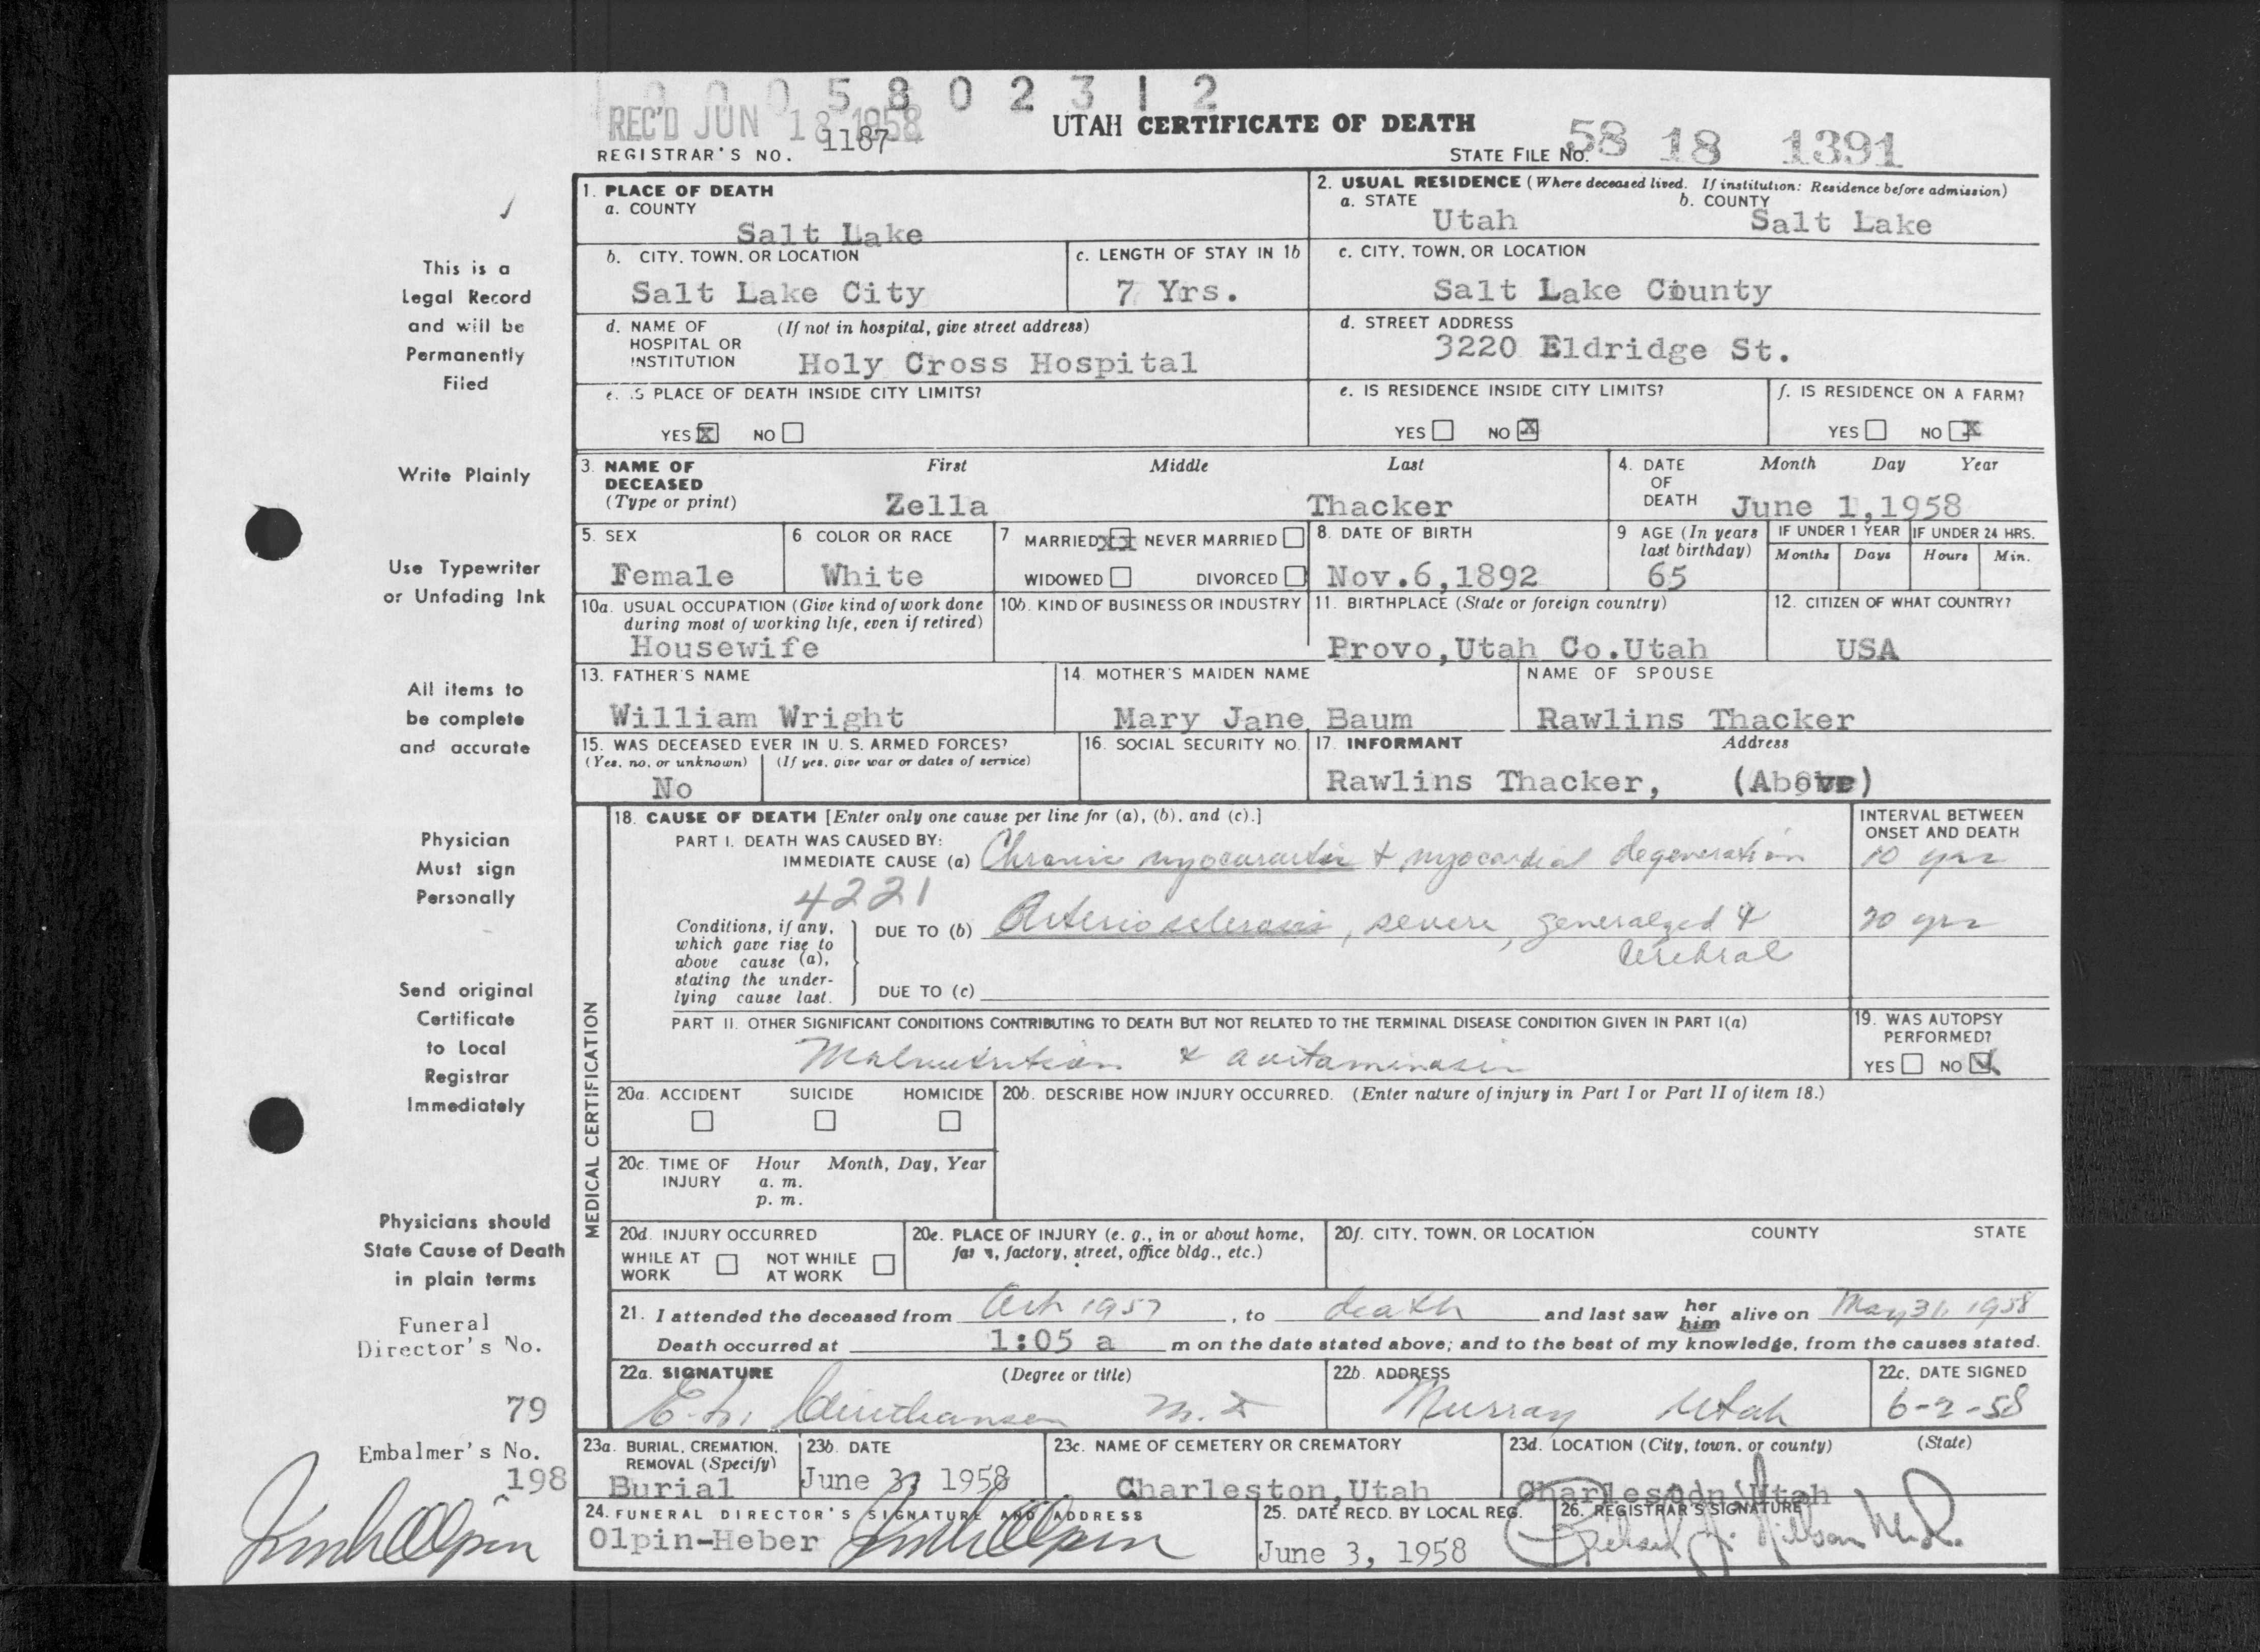 0 0 0 5 8 0 2 3 1 2
REC'D JUN 18 1958
1187
REGISTRAR'S NO.
UTAH CERTIFICATE OF DEATH
STATE FILE NO. 58 18 1391
This is a
Legal Record
and will be
Permanently
Filed
Write Plainly
Use Typewriter
or Unfading Ink
All items to
be complete
and accurate
Physician
Must sign
Personally
Send original
Certificate
to Local
Registrar
Immediately
Physicians should
State Cause of Death
in plain terms
Funeral
Director's No.
79
Embalmer's No.
198
1. PLACE OF DEATH
a. COUNTY
Salt Lake
2. USUAL RESIDENCE (Where deceased lived. If institution: Residence before admission)
a. STATE b. COUNTY
Utah Salt Lake
b. CITY, TOWN, OR LOCATION
Salt Lake City
c. LENGTH OF STAY IN 1b
7 Yrs.
c. CITY, TOWN, OR LOCATION
Salt Lake County
d. NAME OF (If not in hospital, give street address)
HOSPITAL OR
INSTITUTION Holy Cross Hospital
d. STREET ADDRESS
3220 Eldridge St.
e. IS PLACE OF DEATH INSIDE CITY LIMITS?
YES X NO
e. IS RESIDENCE INSIDE CITY LIMITS?
YES NO X
f. IS RESIDENCE ON A FARM?
YES NO X
3. NAME OF First Middle Last
DECEASED
(Type or print) Zella Thacker
4. DATE Month Day Year
OF
DEATH June 1,1958
5. SEX
Female
6 COLOR OR RACE
White
7 MARRIED XX NEVER MARRIED
WIDOWED DIVORCED
8. DATE OF BIRTH
Nov.6,1892
9 AGE (In years
last birthday)
65
IF UNDER 1 YEAR IF UNDER 24 HRS.
Months Days Hours Min.
10a. USUAL OCCUPATION (Give kind of work done
during most of working life, even if retired)
Housewife
10b. KIND OF BUSINESS OR INDUSTRY
11. BIRTHPLACE (State or foreign country)
Provo,Utah Co.Utah
12. CITIZEN OF WHAT COUNTRY?
USA
13. FATHER'S NAME
William Wright
14. MOTHER'S MAIDEN NAME
Mary Jane Baum
NAME OF SPOUSE
Rawlins Thacker
15. WAS DECEASED EVER IN U. S. ARMED FORCES?
(Yes, no, or unknown) (If yes, give war or dates of service)
No
16. SOCIAL SECURITY NO.
17. INFORMANT Address
Rawlins Thacker, (Above)
MEDICAL CERTIFICATION
18. CAUSE OF DEATH [Enter only one cause per line for (a), (b), and (c).]
INTERVAL BETWEEN
ONSET AND DEATH
PART I. DEATH WAS CAUSED BY:
IMMEDIATE CAUSE (a) Chronic myocarditis & myocardial degeneration 10 yrs
4221
Conditions, if any,
which gave rise to
above cause (a),
stating the under-
lying cause last.
DUE TO (b) Arteriosclerosis, severe, generalized & 20 yrs
Cerebral
DUE TO (c)
PART II. OTHER SIGNIFICANT CONDITIONS CONTRIBUTING TO DEATH BUT NOT RELATED TO THE TERMINAL DISEASE CONDITION GIVEN IN PART I(a)
Malnutrition & avitaminosis
19. WAS AUTOPSY
PERFORMED?
YES NO
20a. ACCIDENT SUICIDE HOMICIDE
20b. DESCRIBE HOW INJURY OCCURRED. (Enter nature of injury in Part I or Part II of item 18.)
20c. TIME OF Hour Month, Day, Year
INJURY a. m.
p. m.
20d. INJURY OCCURRED
WHILE AT NOT WHILE
WORK AT WORK
20e. PLACE OF INJURY (e. g., in or about home,
farm, factory, street, office bldg., etc.)
20f. CITY, TOWN, OR LOCATION COUNTY STATE
21. I attended the deceased from Oct 1957, to death and last saw her him alive on May 31, 1958
Death occurred at 1:05 a m on the date stated above; and to the best of my knowledge, from the causes stated.
22a. SIGNATURE (Degree or title)
E. L. Christiansen M.D.
22b. ADDRESS
Murray Utah
22c. DATE SIGNED
6-2-58
23a. BURIAL, CREMATION,
REMOVAL (Specify)
Burial
23b. DATE
June 3, 1958
23c. NAME OF CEMETERY OR CREMATORY
Charleston,Utah
23d. LOCATION (City, town, or county) (State)
Charleston Utah
24. FUNERAL DIRECTOR'S SIGNATURE AND ADDRESS
Olpin-Heber
25. DATE RECD. BY LOCAL REG.
June 3, 1958
26. REGISTRAR'S SIGNATURE